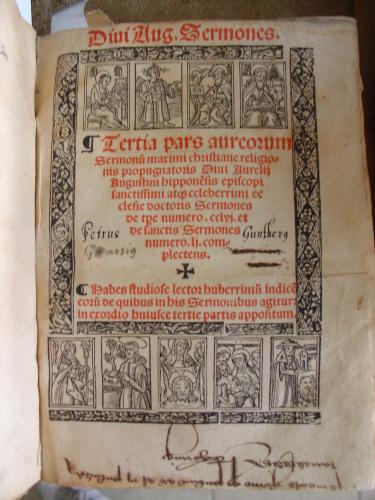 Divi Aug. Sermones.
¶ Tertia pars aureorum
Sermonū maximi christiane religio-
nis propugnatoris Divi Aurelij
Augustini hipponēsis episcopi
sanctissimi atq; celeberrimi ec
clesie doctoris Sermones
de tpe numero .cclvi. et
Petrus de sanctis Sermones Guntberg
numero .lj. com-
plectens.
¶ Habes studiose lector huberrimū indicē
eorū de quibus in his Sermonibus agitur:
in exordio huiusce tertie partis appositum.